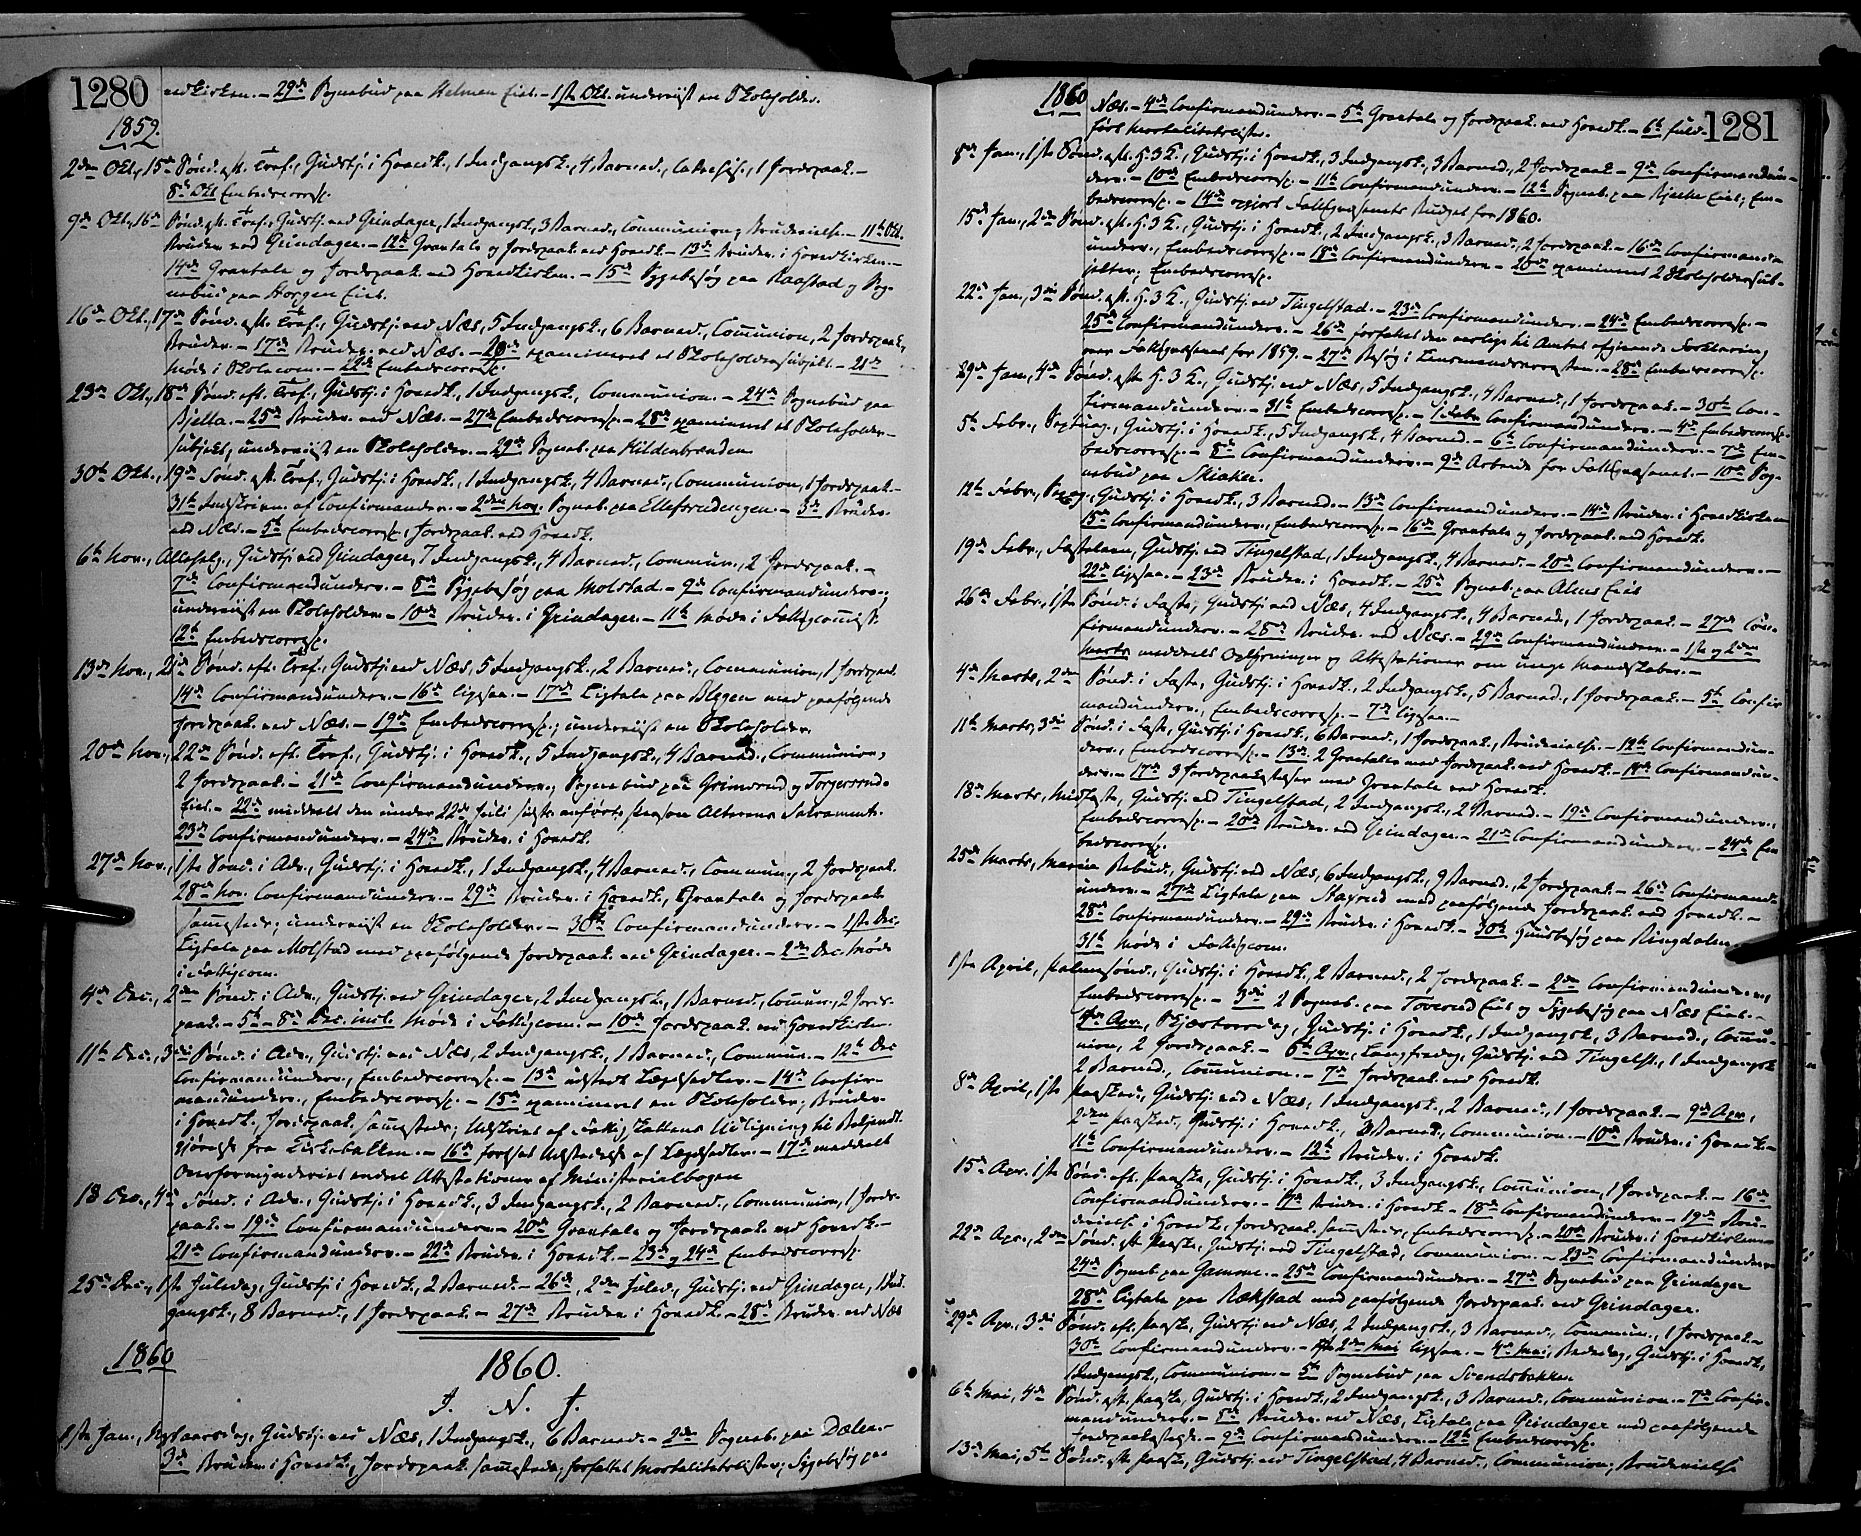 1280
vedkirken. – 29de Sognebud paa Helmen Eiet. – 1ste Okt. underviist en Skoleholder.
1859.
2den Okt., 15de Sønd. eft. Tref., Gudstj. i Hovedk., 1 Indgangsk., 4 Barned., Catechis., 1 Jordspaak. –
8de Okt Embedscorresp.
9de Okt., 16de Sønd. eft. Tref., Gudstj. ved Grindager, 1 Indgangsk., 3 Barned., Communion, Brudevielse. – 11te Okt.
Bruder ved Grindager. – 12te Gravtale og Jordspaak. ved Hovedk. – 13de Bruder. i Hovedkirken. –
14de Gravtale og Jordspaak. ved Hovedkirken. – 15de Sygebesøg paa Raastad og Sog-
nebud paa Horgen Eiet.
16de Okt., 17de Sønd. eft. Tref., Gudstj. ved Næs, 5 Indgangsk., 6 Barned., Communion, 2 Jordspaak.,
Bruder. – 17de Bruder. ved Næs. – 20de examineret et Skoleholdersubjekt. – 21de
Møde i Skolecom. – 22de Embedscorresp.
23de Okt., 18de Sønd. eft. Tref., Gudstj. i Hovedk., 1 Indgangsk., Communion. – 24de Sognebud paa
Bjella. – 25de Bruder. ved Næs. – 27de Embedscorresp. – 28de examineret et Skoleholder-
subjekt, underviist en Skoleholder. – 29de Sogneb. paa Hildenbrænden
30te Okt., 19de Sønd. eft. Tref., Gudstj. i Hovedk., 1 Indgangsk., 4 Barned., Communion, 1 Jordspaak. –
31te Indskrivn. af Confirmander. – 2den Nov. Sogneb. paa Ellefsrudengen. – 3de Bruder.
ved Næs. – 5te Embedscorresp., Jordspaak. ved Hovedk.
6te Nov., Allehelg., Gudstj. ved Grindager, 7 Indgangsk., 4 Barned., Commun., 2 Jordspaak. –
7de Confirmandunderv. – 8de Sygebesøg paa Molstad. – 9de Confirmandunderv.,
underviist en Skoleholder. – 10de Bruder. i Grindager. – 11te Møde i Fattigcommiss.
12te Embedscorresp.
13de Nov., 21de Sønd. eft. Tref., Gudstj. ved Næs, 5 Indgangsk., 2 Barned., Communion, 1 Jordspaak.
14de Confirmandunderv. – 16de ligesaa. – 17de Ligtale paa Blegen med paafølgende
Jordspaak. ved Næs. – 19de Embedscorresp., underviist en Skoleholder.
20de Nov., 22de Sønd. eft. Tref., Gudstj. i Hovedk., 5 Indgangsk., 4 Barned., Communion,
2 Jordspaak. – 21de Confirmandunderv., Sognebud paa Grimsrud og Torgersrud-
Eiet. – 22de meddelt den under 22de Juli sidste anførte Person Alterens Sacrament.
23de Confirmandunderv. – 24de Bruder. i Hovedk.
27de Nov., 1ste Sønd. i Adv., Gudstj. i Hovedk., 1 Indgangsk., 4 Barned., Commun., 2 Jordspaak.
28de Nov. Confirmandunderv. – 29de Bruder. i Hovedk., Gravtale og Jordspaak
sammesteds, underviist en Skoleholder. – 30te Confirmandunderv. – 1ste Dec.
Ligtale paa Molstad med paafølgende Jordspaak. ved Grindager. – 2den Dec. Møde
i Fattigcom.
4de Dec., 2den Sønd. i Adv., Gudstj. ved Grindager, 2 Indgangsk., 1 Barned., Commun., 2 Jords-
paak. – 5te – 8de Dec. incl. Møde i Fattigcom. – 10de Jordspaak. ved Hovedkirken.
11te Dec., 3die Sønd. i Adv., Gudstj. ved Næs, 2 Indgangsk., 1 Barned., Commun. – 12te Dec
Confirmandunderv., Embedscorresp. – 13de udstedt Lægdsedler. – 14de Confir-
mandunderv., Embedscorresp. – 15de examineret en Skoleholder, Bruder.
i Hovedk., Jordspaak. sammesteds, Udskrivt af Fattig Kassens Udligning til Bekjendt-
gjørelse fra Kirkebakken. – 16de fortsat Udstedelse af Lægdsedler. – 17de meddeelt
Overformynderiet endeel Attestationer af Ministerialbogen
18 Dec., 4de Sønd. i Adv., Gudstj. i Hovedk., 3 Indgangsk., 2 Barned., Communion, 1 Jords-
paak. – 19de Confirmandunderv. – 20de Gravtale og Jordspaak. ved Hovedk. –
21de Confirmandunderv. – 22de Bruder. i Hovedk. – 23de og 24de Embedscorresp.
25de Dec., 1ste Juledag, Gudstj. i Hovedk., 2 Barned. – 26de, 2den Juled., Gudstj. ved Grindager, 1 Ind-
gangsk., 8 Barned., 1 Jordspaak. – 27de Bruder. i Hovedk. – 28de Bruder. ved Næs
1860
1860.
J. N. J.
1ste Jan., Nytaarsdag, Gudstj. ved Næs, 1 Indgangsk., 6 Barned. – 2den Sogneb. paa Dælen. –
3de Bruder. i Hovedk., Jordspaak. sammesteds, forfattet Mortalitetslister, Sygebesøg paa
1281
1860
Næs. – 4de Confirmandunderv. – 5te Gravtale og Jordspaak. ved Hovedk. – 6te fuld-
ført Mortalitetslister.
8de Jan., 1ste Sønd. eft. H. 3 K., Gudstj. i Hovedk., 3 Indgangsk., 3 Barned., 2 Jordspaak. – 9de Confirmandun-
derv. – 10de Embedscorresp. – 11te Confirmandunderv. – 12te Sogneb. paa Bjelke Eiet, Em-
bedscorresp. – 14de opgjort Fattigvæsenets Budget for 1860.
15de Jan., 2den Sønd. eft. H. 3 K., Gudstj. i Hovedk., 2 Indgangsk., 3 Barned., 2 Jordspaak. – 16de Confirmand-
underv., Embedscorresp. – 18de Confirmandunderv. – 20de examineret 2 Skoleholdersub-
jekter; Embedscorresp.
22de Jan., 3die Sønd. eft. H. 3 K., Gudstj. ved Tingelstad. – 23de Confirmandunderv. – 24de Embedscorresp. –
25de Confirmandunderv. – 26de forfattet den aarlige til Amtet afgivende Forklaring
over Fattigvæsenet for 1859. – 27de Besøg i Lensmandsarresten. – 28de Embedscorresp.
29de Jan., 4de Sønd. eft. H. 3 K., Gudstj. ved Næs, 5 Indgangsk., 4 Barned., 1 Jordspaak. – 30te Con-
firmandunderv. – 31te Embedscorresp. – 1 Febr. Confirmandunderv. – 4de Embedscorresp.
5te Febr., Septuag., Gudstj. i Hovedk., 5 Indgangsk., 4 Barned. – 6te Confirmandunderv. – 7de Em-
bedscorresp. – 8de Confirmandunderv. – 9de Arbeide for Fattigvæsenet. – 10de Sog-
nebud paa Skiaker.
12te Febr., Sexag., Gudstj. i Hovedk., 3 Barned. – 13de Confirmandunderv. – 14de Bruder. i Hovedkirken
15de Confirmandunderv., Embedscorresp. – 16de Gravtale og Jordspaak. ved Hovedk.
19de Febr., Fastelavn, Gudstj. ved Tingelstad, 1 Indgangsk., 4 Barned. – 20de Confirmandunderv. –
22de ligesaa. – 23de Bruder. i Hovedk. – 25de Sogneb. paa Alms Eiet
26de Febr., 1ste Sønd. i Faste, Gudstj. ved Næs, 4 Indgangsk., 4 Barned., 1 Jordspaak. – 27de Con-
firmandunderv. – 28de Bruder. ved Næs. – 29de Confirmandunderv. – 1ste og 2den
Marts meddeelt Oplysninger og Attestationer om unge Mandskaber. –
4de Marts, 2den Sønd. i Faste, Gudstj. i Hovedk., 2 Indgangsk., 5 Barned., 1 Jordspaak. – 5te Confir-
mandunderv., Embedscorresp. – 7de ligesaa. –
11te Marts, 3die Sønd. i Faste, Gudstj. i Hovedk., 6 Barned., 1 Jordspaak., Brudevielse. – 12te Confirmandun-
derv., Embedscorresp. – 13de 2 Gravtaler med Jordspaak. ved Hovedk. – 14de Confirmandun-
derv. – 17de 3 Jordspaakastelser med Gravtale ved Hovedk.
18de Marts, Midfaste, Gudstj. ved Tingelstad, 2 Indgangsk., 2 Barned. – 19de Confirmandunderv.,
Embedscorresp. – 20de Bruder. ved Grindager. – 21de Confirmandunderv. – 24de Em-
bedscorresp.
25de Marts, Mariæ Bebud., Gudstj. ved Næs, 6 Indgangsk., 9 Barned., 2 Jordspaak. – 26de Confirmand-
underv. – 27de Ligtale paa Hagrud med paafølgende Jordspaak. ved Hovedk. –
28de Confirmandunderv. – 29de Bruder. i Hovedk. – 30te Huusbesøg paa Ringdalen
31te Møde i Fattigcom.
1ste April, Palmesønd., Gudstj. i Hovedk., 2 Barned., 2 Jordspaak. – 2den Confirmandunderv.,
Embedscorresp. – 3die 2 Sogneb. paa Toverud Eiet og Sygebesøg paa Næs Eiet. –
5te Apr., Skjærtorsdag, Gudstj. i Hovedk., 1 Indgangsk., 3 Barned., Commu-
nion, 2 Jordspaak. – 6te Apr., Langfredag, Gudstj. ved Tingelst., 1 Indgangsk.
2 Barned., Communion. – 7de Jordspaak. ved Hovedk.
8de April, 1ste Paasked., Gudstj. ved Næs, 1 Indgangsk., 2 Barned., 1 Jordspaak. – 9de Apr.,
2den Paasked., Gudstj. i Hovedk., Barned., Communion. – 10de Bruder. i Hovedk. –
11te Confirmandunderv. – 12te Bruder. i Hovedk.
15de Apr. 1ste Sønd. eft. Paaske, Gudstj. i Hovedk., 3 Indgangsk., Communion, 1 Jordspaak. – 16de
Confirmandunderv. – 17de Bruder. i Hovedk. – 18de Confirmandunderv. – 19de Bru-
devielse i Hovedk., Jordspaak. sammesteds, Embedscorresp. – 20de Bruder. i Hovedkirken
22de Apr., 2den Sønd. eft. Paaske, Gudstj. ved Tingelstad, Communion. – 23de Confirmandunderv.
24de Sogneb. paa Gamme. – 25de Confirmandunderv. – 27de Sognebud paa Grindager
28de Ligtale paa Rækstad med paafølgende Jordspaak. ved Grindager.
29de Apr., 3die Sønd. eft. Paaske, Gudstj. ved Næs, 2 Indgangsk., 3 Barned., Commun., 1 Jordspaak. –
30te Confirmandunderv. – 2den Mai ligesaa. – 4de Mai, Bededag, Gudstj. i Hovedk.,
1 Indgangsk., Communion. – 5te Sognebud paa Svendsbakken
6te Mai, 4de Sønd. eft. Paaske, Gudstj. i Hovedk., 2 Indgangsk., 3 Barned., Communion. – 7de Confir-
mandunderv. – 8de Bruder. ved Næs, Ligtale paa Grindager med paafølgende
Jordspaakastelse. – 9de Confirmandunderv. – 12te Embedscorresp.
13de Mai, 5te Sønd. eft. Paaske, Gudstj. ved Tingelstad, 4 Barned., Communion, Brudevielse